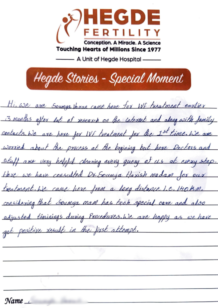 HEGDE
FERTILITY
Conception. A Miracle. A Science
Touching Hearts of Millions Since 1977
A Unit of Hegde Hospital
Hegde Stories - Special Moment
Hi, We are Sowmya have came here for IVF treatment earlier
3 months after lot of research on the internet and along with family
contacts. We are here for IVF treatment for the 1st time. We are
worried about the process at the begining but here Doctors and
Staff are very helpful clearing every query of us at every step.
Here we have consulted Dr. Sowmya Harish madam for our
treatment. We came here from a long distance i.e.
considering that Sowmya mam has took special care and also
adjusted timings during Procedures. We are happy as we have
got positive result in the first attempt.
Name